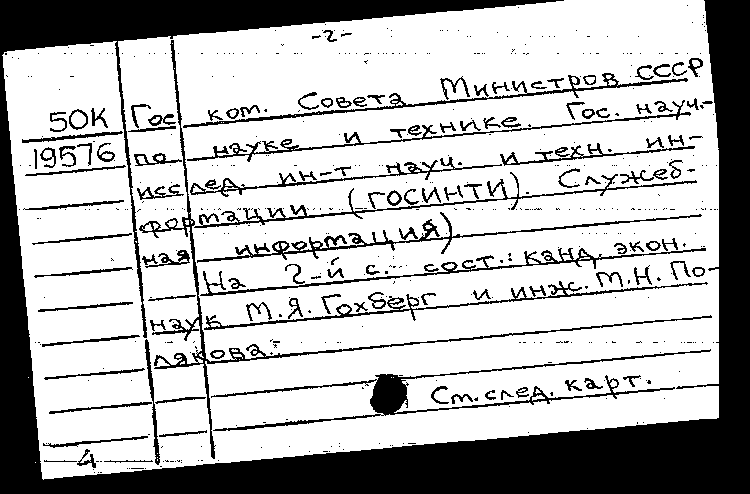 -2-
50К Гос ком. Совета Министров СССР
19576 по науке и технике. Гос. науч.-
исслед. ин-т науч. и техн. ин-
формации (ГОСИНТИ). Служеб-
ная информация)
На 2-й с. сост.: канд. экон.
наук М.Я. Гохберг и инж. М.Н. По-
лякова.
См. след. карт.
4